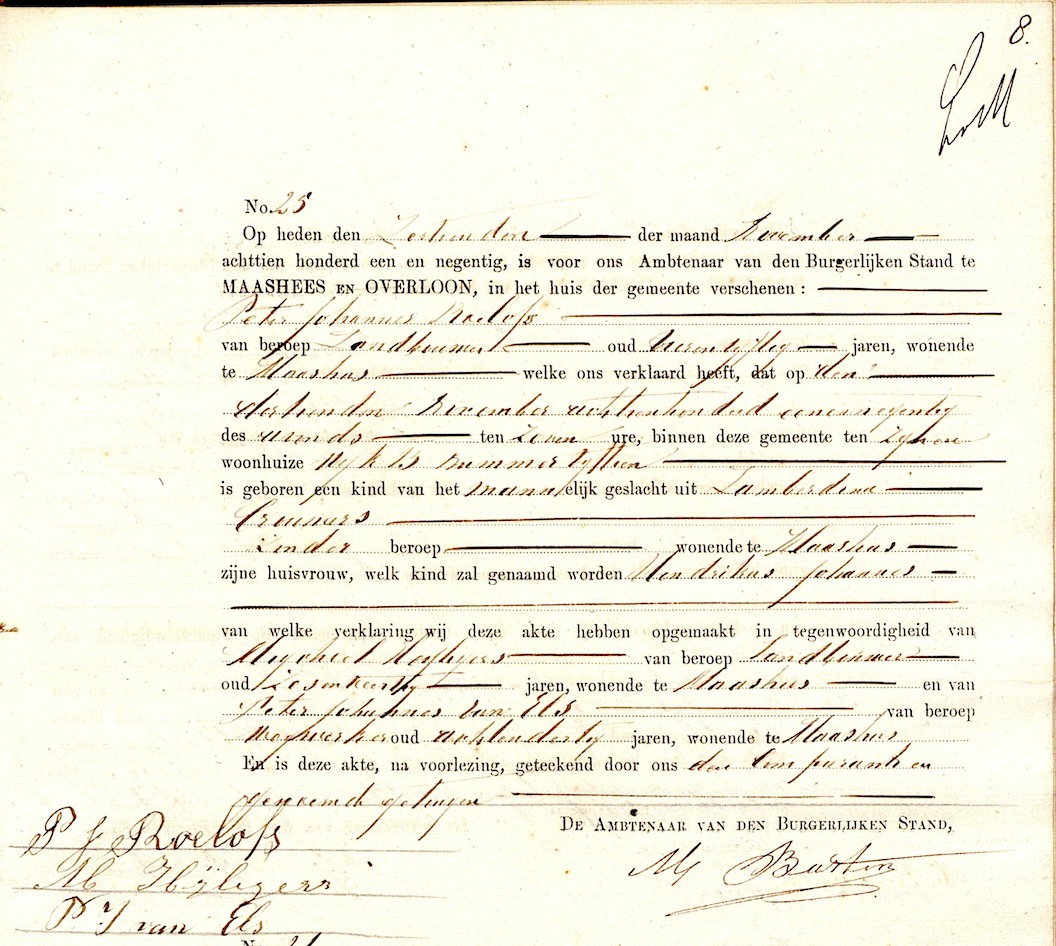 8.
No. 25
Op heden den Zestienden der maand November
achttien honderd een en negentig, is voor ons Ambtenaar van den Burgerlijken Stand te
MAASHEES EN OVERLOON, in het huis der gemeente verschenen :
Peter Johannes Roelofs
van beroep Landbouwer oud Vierenvijftig jaren, wonende
te Maashees welke ons verklaard heeft, dat op den
dertienden November achttienhonderd eenennegentig
des avonds ten zeven ure, binnen deze gemeente ten zijnen
woonhuize Wijk B nummer vijftien
is geboren een kind van het mannelijk geslacht uit Lamberdina
Crommers
Zonder beroep wonende te Maashees
zijne huisvrouw, welk kind zal genaamd worden Hendrikus Johannes
van welke verklaring wij deze akte hebben opgemaakt in tegenwoordigheid van
Michiel Heijligers van beroep landbouwer
oud Zesenveertig jaren, wonende te Maashees en van
Peter Johannes van Els van beroep
wegwerker oud achtendertig jaren, wonende te Maashees
En is deze akte, na voorlezing, geteekend door ons den Comparant en
genoemde getuigen
DE AMBTENAAR VAN DEN BURGERLIJKEN STAND,
P J Roelofs
M Hijligers
P. J van Els
No